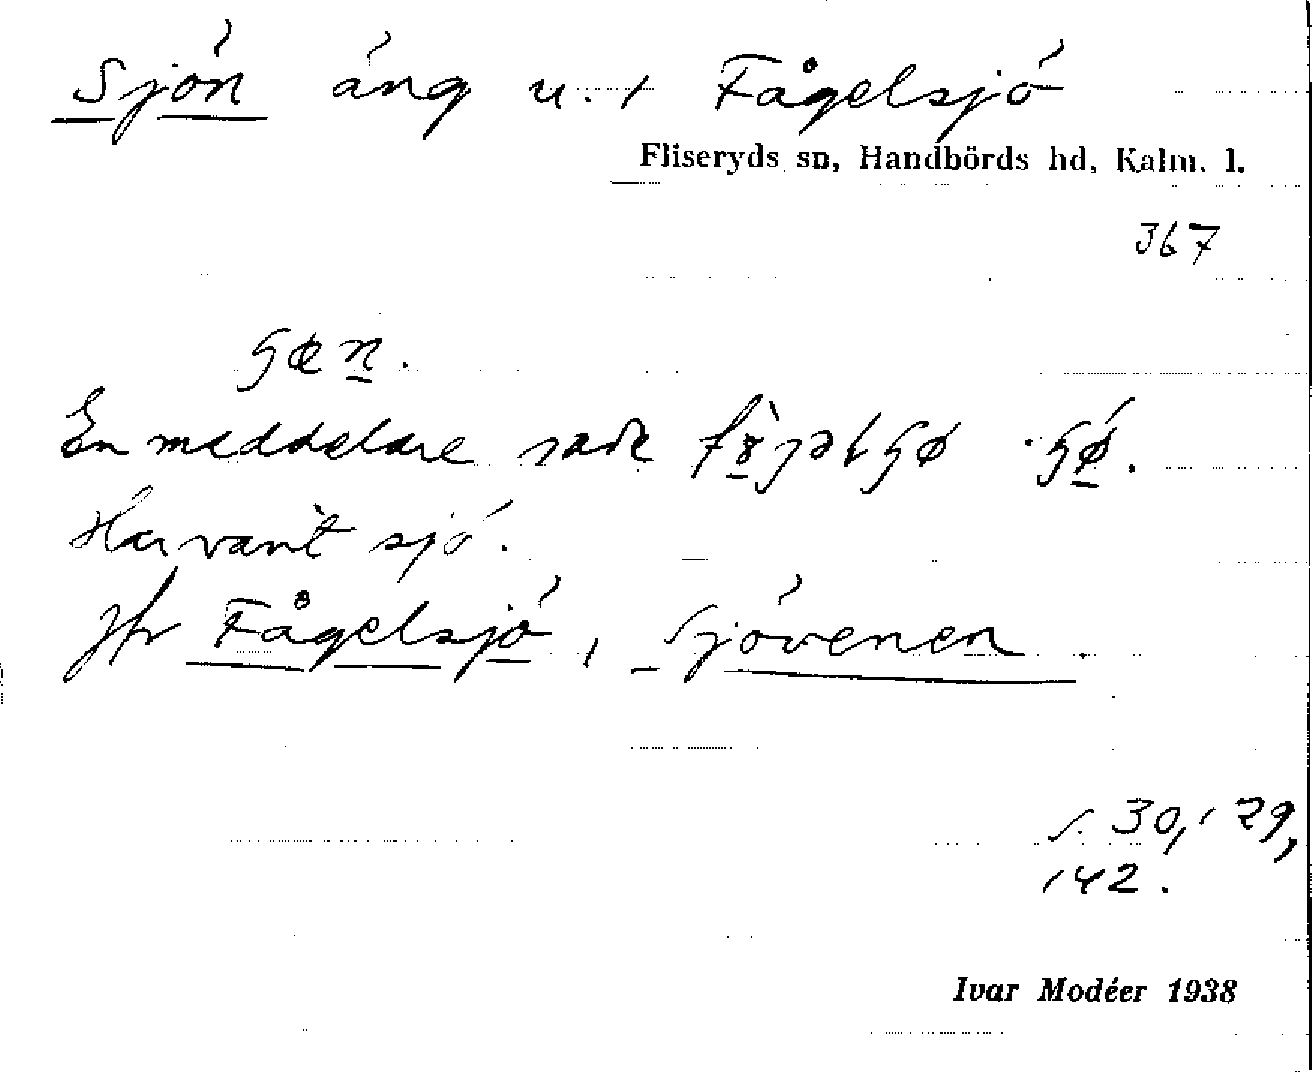 Sjön äng u. t Fågelsjö
Fliseryds sn, Handbörds hd, Kalm. l.
367
En meddelare sade
Har varit sjö.
Jfr Fågelsjö, Sjövenen.
s. 30, 129,
142.
Ivar Modéer 1938